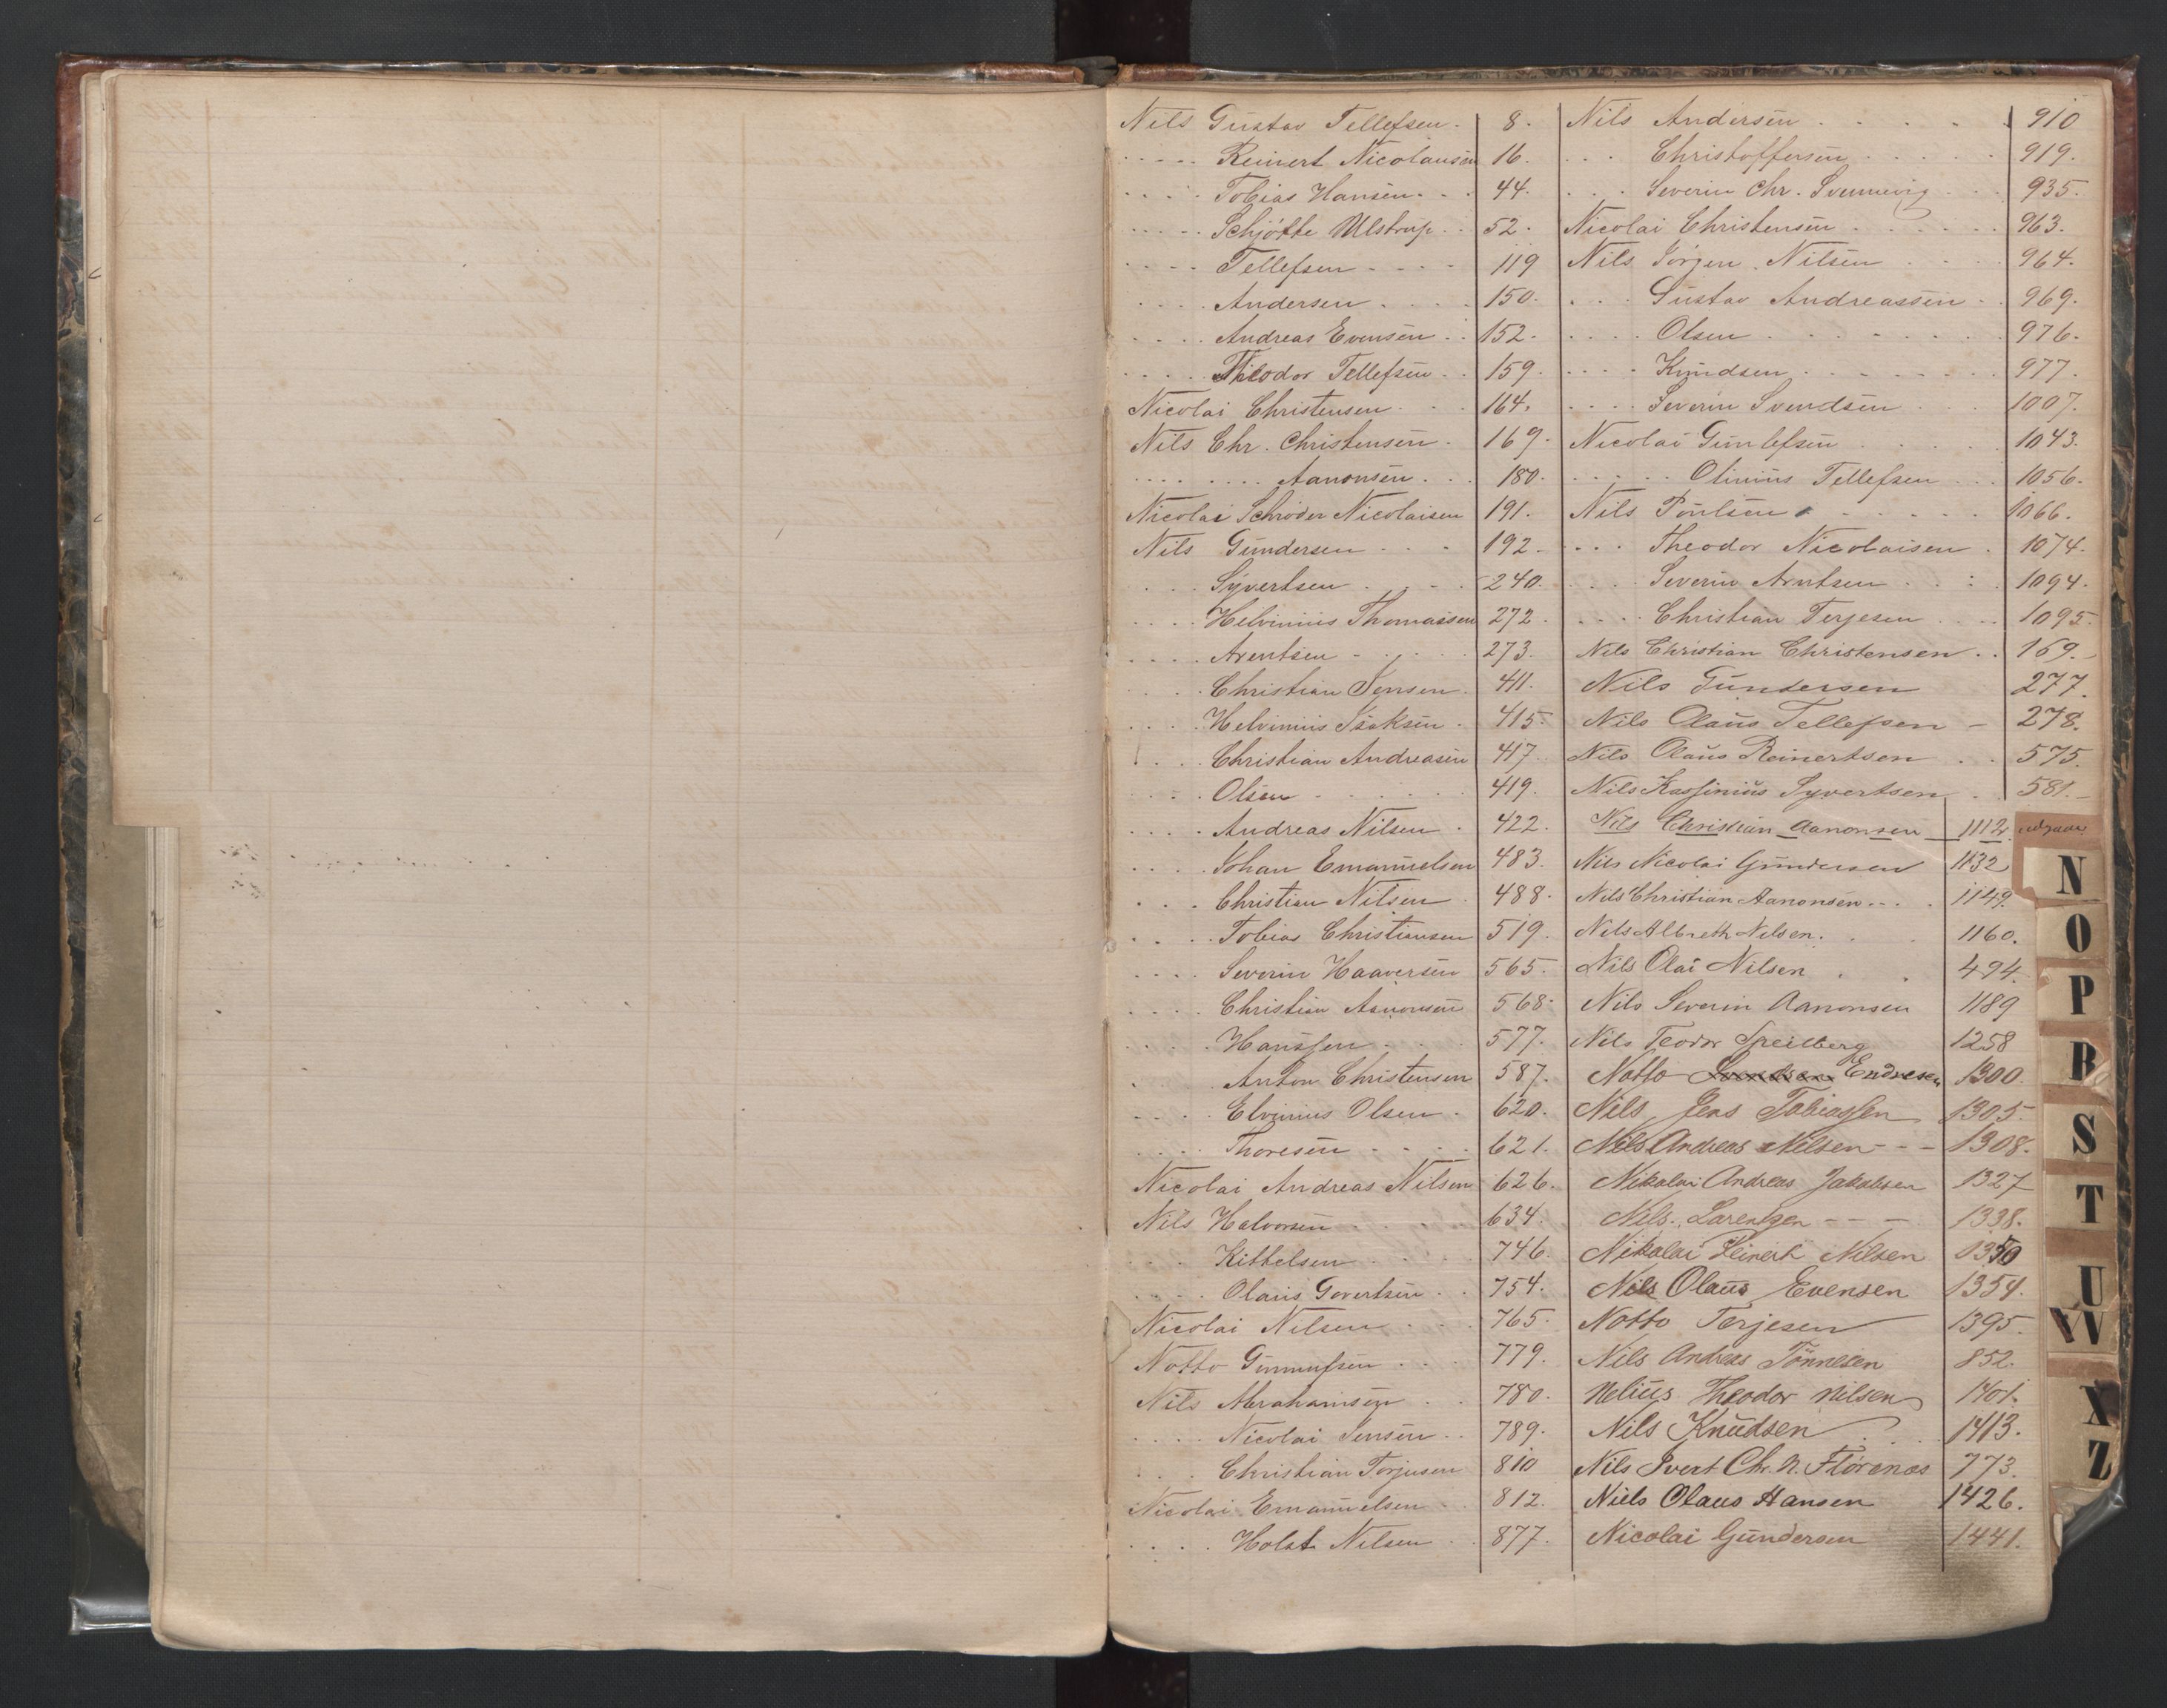 Nils Gustav Tellefsen. 8.
..... Reinert Nicolaisen 16.
.... Tobias Hansen. . . 44.
..... Schjötte Ulstrup. . 52.
.... Tellefsen . . . . 119
.... Andersen . . . . 150.
.... Andreas Evensen . . 152.
..... Theodor Tellefsen . . 159.
Nicolai Christensen . . . 164.
Nils Chr. Christensen . 169.
........ Aanonsen . . . 180.
Nicolai Schröder Nicolaisen 191.
Nils Gundersen . . . 192.
.... Syvertsen . . . . 240.
.... Helvinius Thomassen 272.
.... Arentsen . . . . 273.
.... Christian Jensen . 411.
.... Helvinius Isaksen . 415.
.... Christian Andreasen 417.
.... Olsen . . . . . 419.
.... Andreas Nilsen . 422.
.... Johan Emanuelsen 483.
.... Christian Nilsen . 488.
.... Tobias Christiansen 519.
.... Severin Haaversen 565.
.... Christian Aanonsen 568.
.... Hanssen . . . 577.
.... Anton Christensen 587.
.... Elvinius Olsen . 620.
.... Thoresen . . . . 621.
Nicolai Andreas Nilsen 626.
Nils Halvorsen . . . . 634.
.... Kittelsen . . . . 746.
.... Olaus Govertsen . . 754.
Nicolai Nilsen . . . 765.
Notto Gunnufsen . . . 779.
Nils Abrahamsen . . 780.
.... Nicolai Jensen . . 789.
.... Christian Torjusen 810
Nicolai Emanuelsen . . 812.
.... Holst Nilsen . . 877.
Nils Andersen . . . . . 910
... Christoffersen . . . . . 919.
... Severin Chr. Svennevig . . . 935.
Nicolai Christensen . . . . . 963.
Nils Jörgen Nilsen . . . . 964.
... Gustav Andreassen . . 969.
.... Olsen . . . . . . . 976.
.... Knudsen . . . . . . . 977.
.... Severin Svendsen . . . . 1007.
Nicolai Gunlefsen . . . . 1043.
..... Olinius Tellefsen . . . 1056.
Nils Poulsen . . . . . . 1066.
.... Theodor Nicolaisen . 1074.
.... Severin Arntsen . . . 1094.
.... Christian Terjesen . . . . 1095.
Nils Christian Christensen . . 169.
Nils Gundersen 277.
Nils Olaus Tellefsen - 278.
Nils Olaus Reinertsen . . 575.
Nils Kassinius Syvertsen . . 581.-
Nils Christian Aanonsen 1112. udgaar
Nils Nicolai Gundersen 1132
Nils Christian Aanonsen . . . . 1149.
Nils Albreth Nilsen. . . 1160.
Nils Olai Nilsen . . 494.
Nils Severin Aanonsen 1189
Nils Teodor Speilberg 1258
Notto Endresen 1300.
Nils Jens Tobiassen 1305.
Nils Andreas Nilsen - - - 1308.
Nikolai Andreas Jakobsen 1327
Nils Larentzen - - - 1338.
Nikolai Reinert Nilsen 1350
Nils Olaus Evensen 1354.
Notto Terjesen 1395.
Nils Andreas Tönnesen 852.
Nelius Theodor Nilsen 1401.
Nils Knudsen . . . 1413.
Nils Ivert Chr. N. Flörenæs 773.
Niels Olaus Hansen 1426.
Nicolai Gundersen 1441.
N
O
P
R
S
T
U
W
X
Z